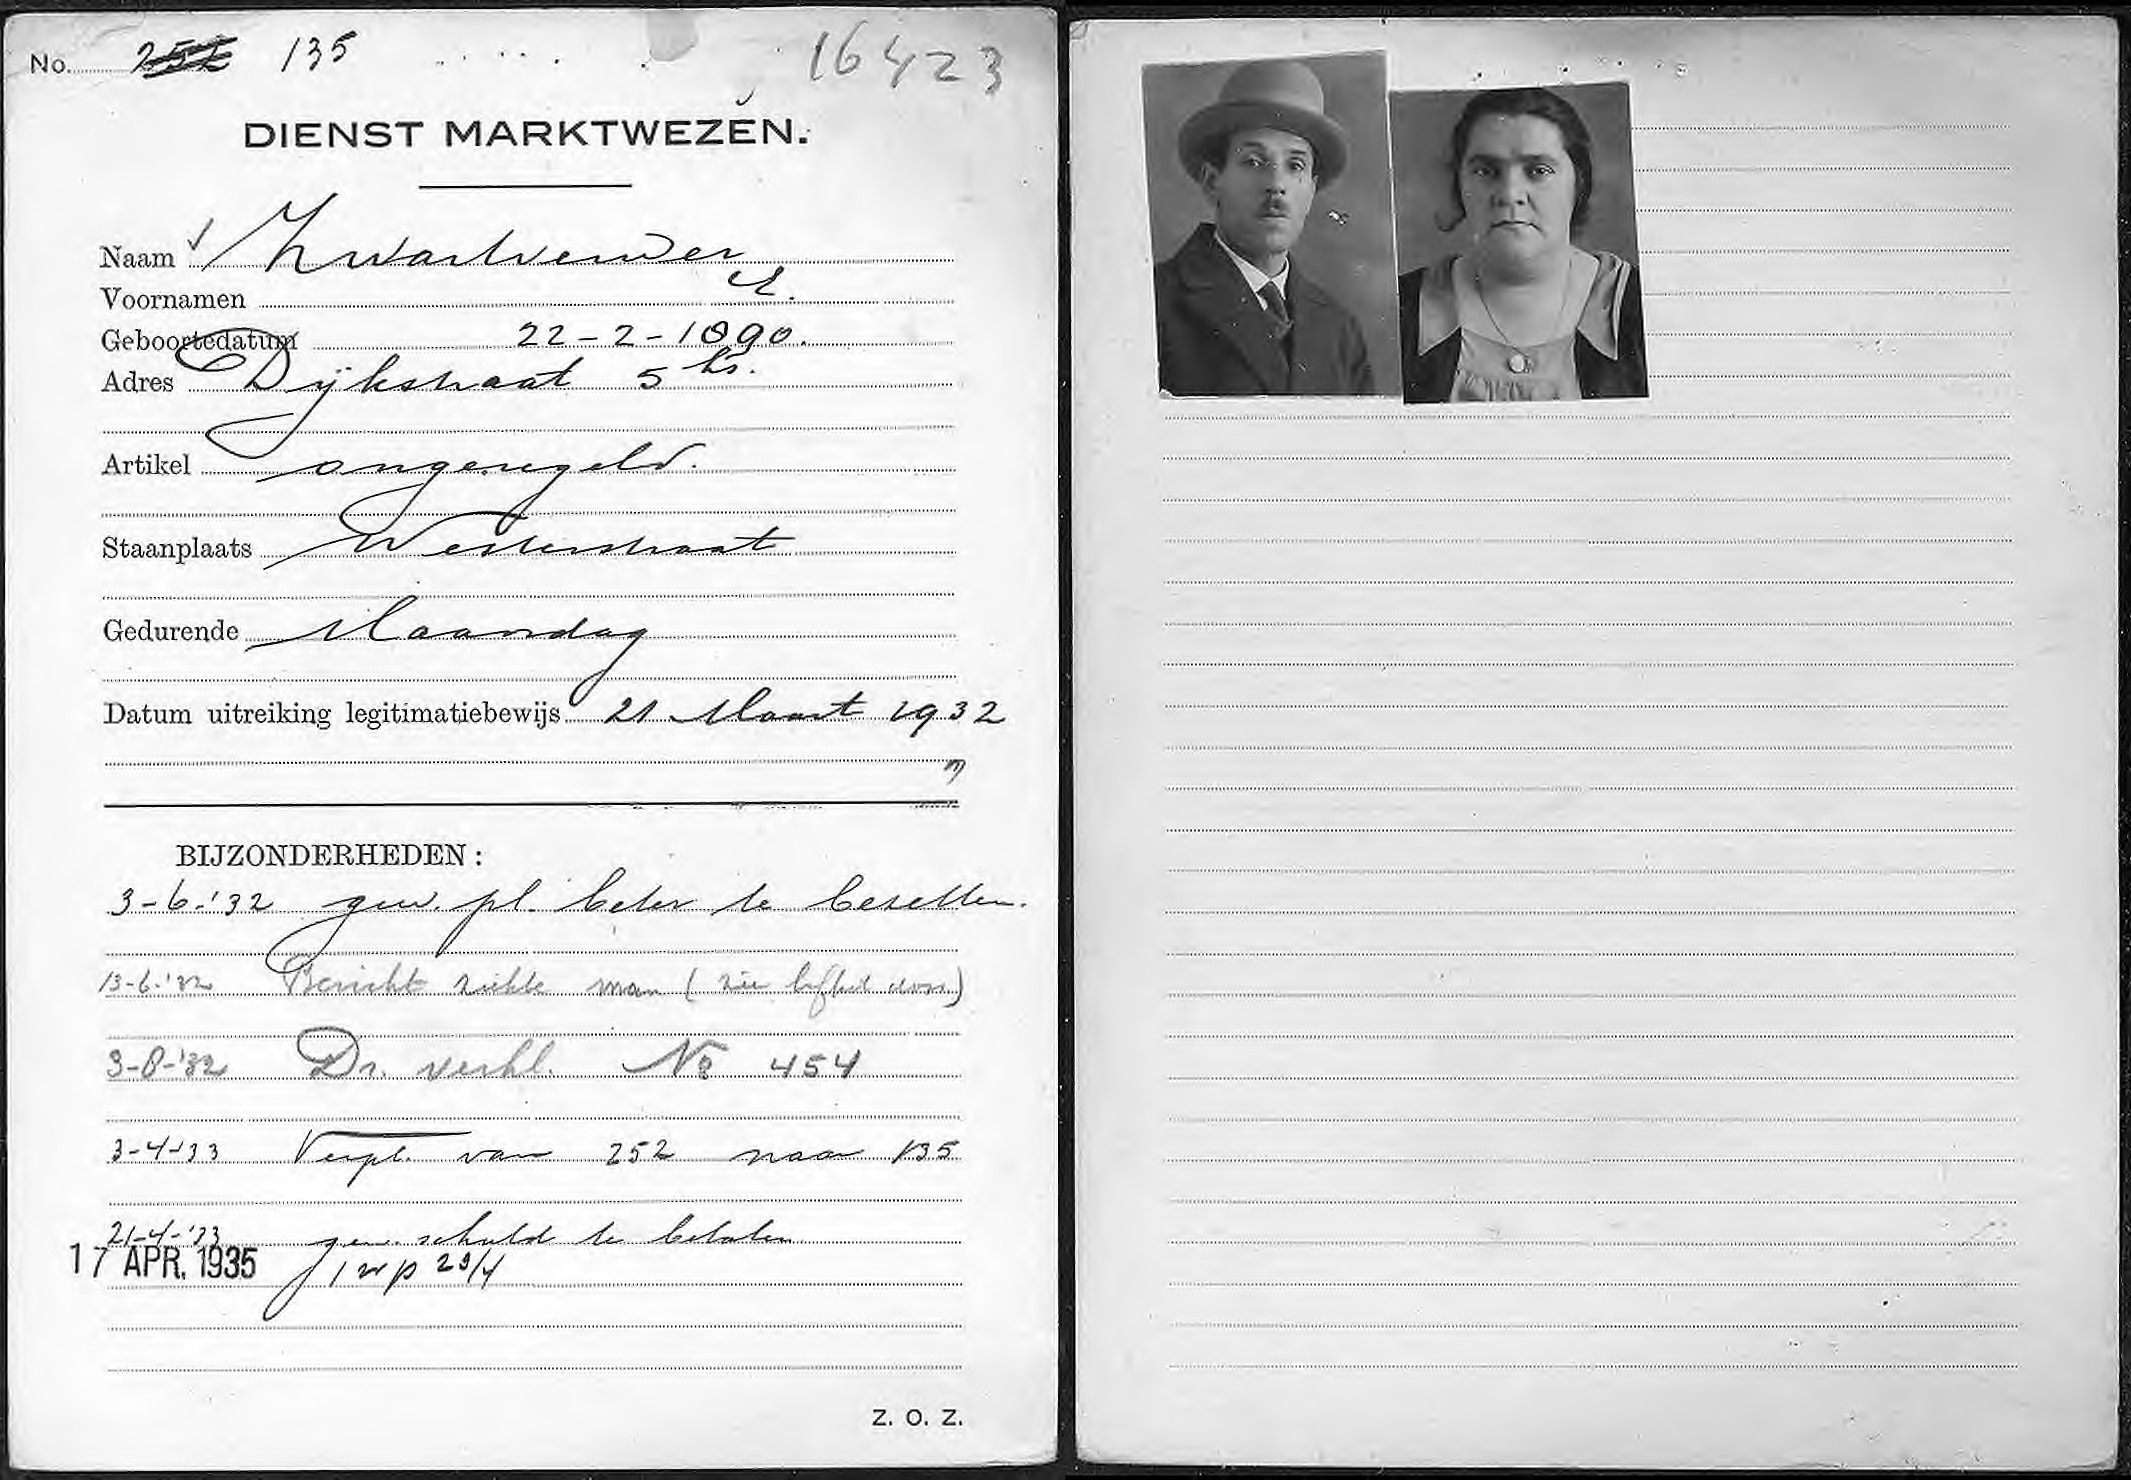 No. 252 135 16423
DIENST MARKTWEZEN.
Naam Zwartverwer
Voornamen E.
Geboortedatum 22-2-1890.
Adres Dijkstraat 5 hs.
Artikel ongeregeld.
Staanplaats Westerstraat
Gedurende Maandag
Datum uitreiking legitimatiebewijs 21 Maart 1932
BIJZONDERHEDEN:
3-6-'32 gew. pl. beter te bezetten.
13-6-'32 Bericht ziekte man (zie
3-8-'32 Dr. verkl. No 454
3-4-'33 Verpl. van 252 naar 135
21-4-'33 gew. schuld te betalen
17 APR. 1935 29/4
Z. O. Z.